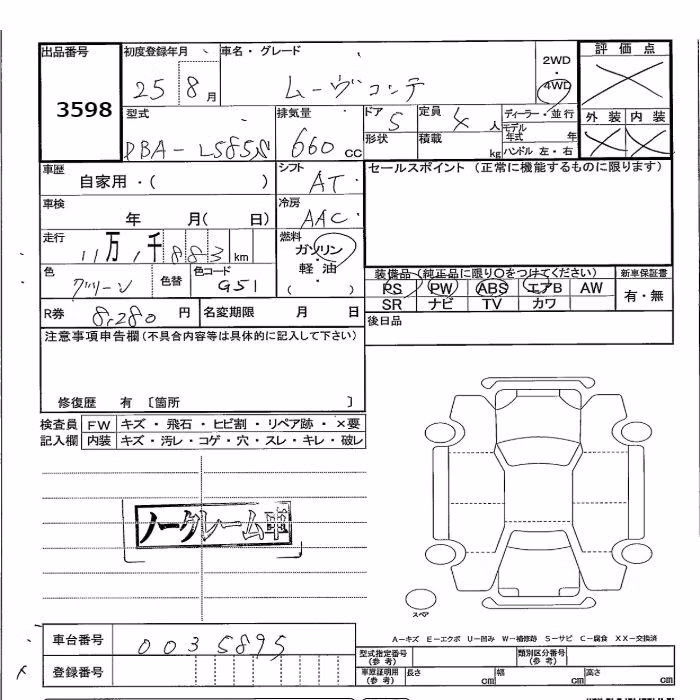 出品番号 初度登録年月 車名・グレード 2WD ・ 4WD 評価点
3598 25 8月 ムーヴコンテ
型式 排気量 ドア 5 定員 4人 ディーラー・並行 外装 内装
DBA- L585S 660cc 形状 積載 kg モデル年式 年
ハンドル 左・右
車歴 自家用・( ) シフト AT セールスポイント (正常に機能するものに限ります)
車検 年 月( 日) 冷房 AAC
走行 11万1千883km 燃料 ガソリン・軽油( )
色 グリーン 色替 色コード G51 装備品(純正品に限り○をつけてください) 新車保証書
PS PW ABS エアB AW 有・無
SR ナビ TV カワ
R券 8,280円 名変期限 月 日 後日品
注意事項申告欄(不具合内容等は具体的に記入して下さい)
修復歴 有 〔箇所 〕
検査員 FW キズ・飛石・ヒビ割・リペア跡・×要
記入欄 内装 キズ・汚レ・コゲ・穴・スレ・キレ・破レ
ノークレーム車
スペア
車台番号 0035895
A－キズ E－エクボ U－凹み W－補修跡 S－サビ C－腐食 XX－交換済
登録番号 型式指定番号(参考) 類別区分番号(参考)
車庫証明用(参考) 長さ cm 幅 cm 高さ cm